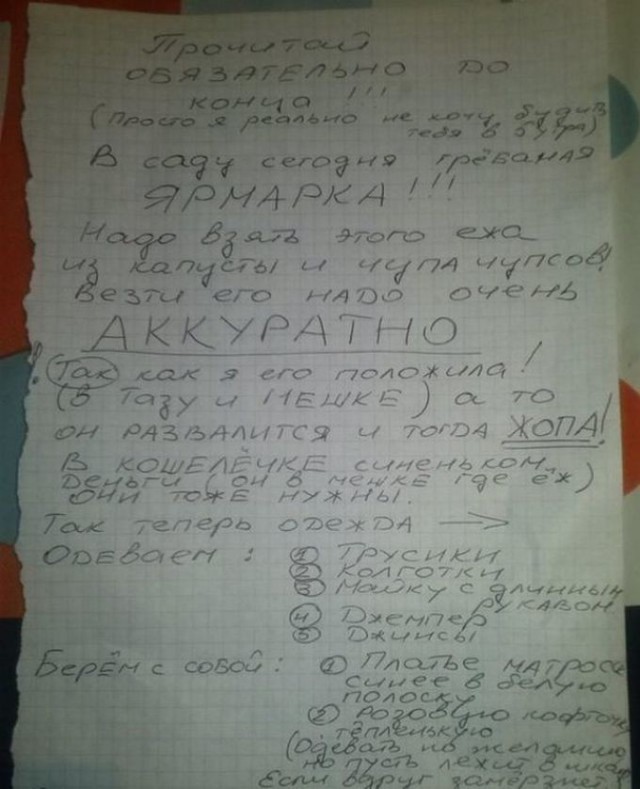 Прочитай
ОБЯЗАТЕЛЬНО ДО
КОНЦА !!!
(Просто я реально не хочу будить
тебя в 5 утра)
В саду сегодня грёбаная
ЯРМАРКА!!!
Надо взять этого ежа
из капусты и чупа чупсов!
Везти его НАДО очень
АККУРАТНО
! Так как я его положила!
(В ТАЗУ и МЕШКЕ) а то
ОН РАЗВАЛИТСЯ и тогда ЖОПА!
В КОШЕЛЁЧКЕ синеньком
Деньги (он в мешке где ёж)
ОНИ ТОЖЕ НУЖНЫ.
Так теперь ОДЕЖДА →
ОДЕВАЕМ: ① Трусики
② КОЛГОТКИ
③ Майку с длинным
рукавом
④ Джемпер
⑤ Джинсы
Берём с собой: ① Платье матроса
синее в белую
полоску
② Розовую кофточку
тёпленькую
(Одевать по желанию
но пусть лежит в шкафу
Если вдруг замёрзнет